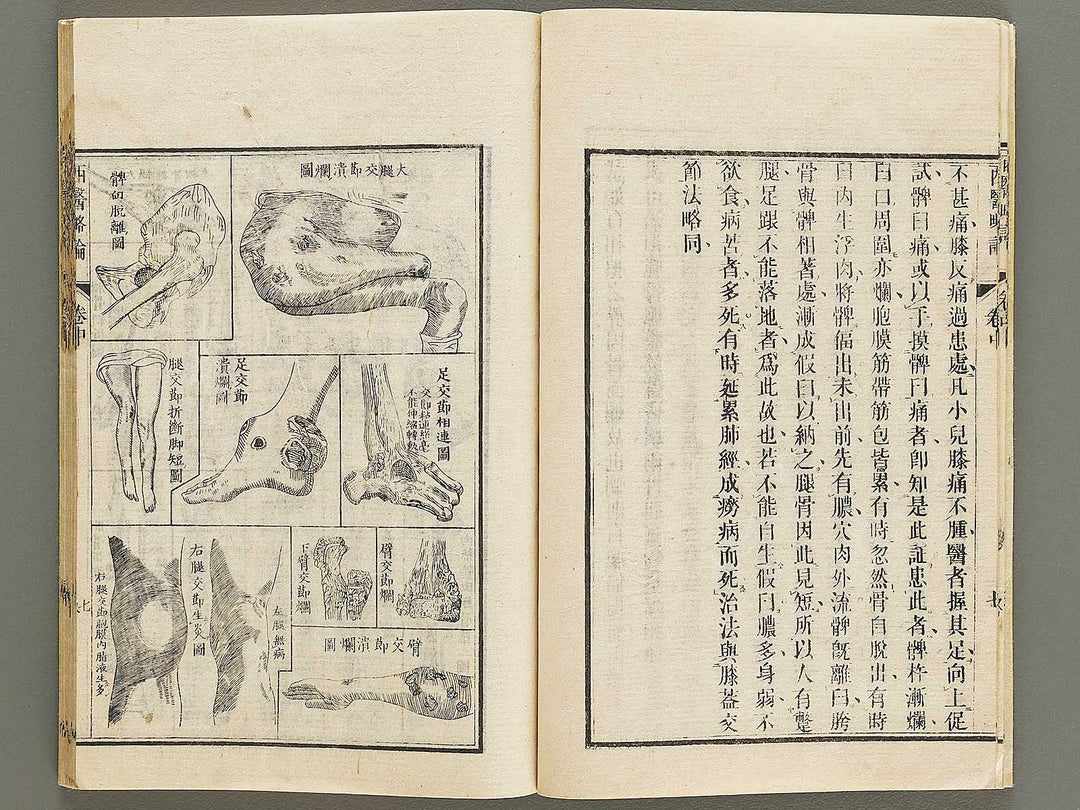 不甚痛膝反痛過患處凡小兒膝痛不腫醫者握其足向上促
試髀臼痛或以手摸髀臼痛者卽知是此証患此者髀杵漸爛
臼口周圍亦爛胞膜筋帶筋包皆累有時忽然骨自脫出有時
臼內生浮肉將髀偪出未出前先有膿穴肉外流髀旣離臼胯
骨與髀相著處漸成假臼以納之腿骨因此見短所以人有蹩
腿足跟不能落地者爲此故也若不能自生假臼膿多身弱不
欲食病苦者多死有時延累肺經成癆病而死治法與膝蓋交
節法略同
西醫略論
卷中
大腿交節潰爛圖
髀臼脫離圖
足交節相連圖
交節粘連終竟
不能伸縮轉動
足交節
潰爛圖
腿交節折斷脚短圖
臂交節爛
下臂交節爛
臂交節潰爛圖
左腿無病
右腿交節生炎圖
右腿交節胞膜內脂液生多
西醫略論
卷中